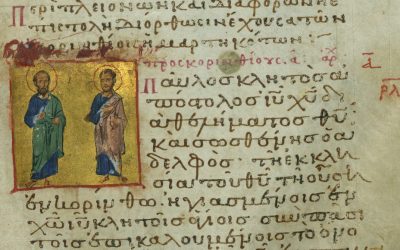 Περὶ πλειόνων καὶ διαφορῶν ἡ ἐ
πιστολὴ διόρθωσιν ἔχουσα τῶν
κορινθίοις ἡμαρτηκότων
πρὸς κορινθίους α
Παῦλος κλητὸς ἀ
πόστολος ιυ χυ δι
ὰ θελήματος θυ
καὶ σωσθένης ὁ ἀ
δελφὸς τῆ ἐκκλη
σία τοῦ θυ τῆ οὔση
ἐν κορίνθω ἡγιασμένοις ἐν
χω ιυ κλητοῖς ἁγίοις σὺν πᾶσι
τοῖς ἐπικαλουμένοις τὸ ὄνο